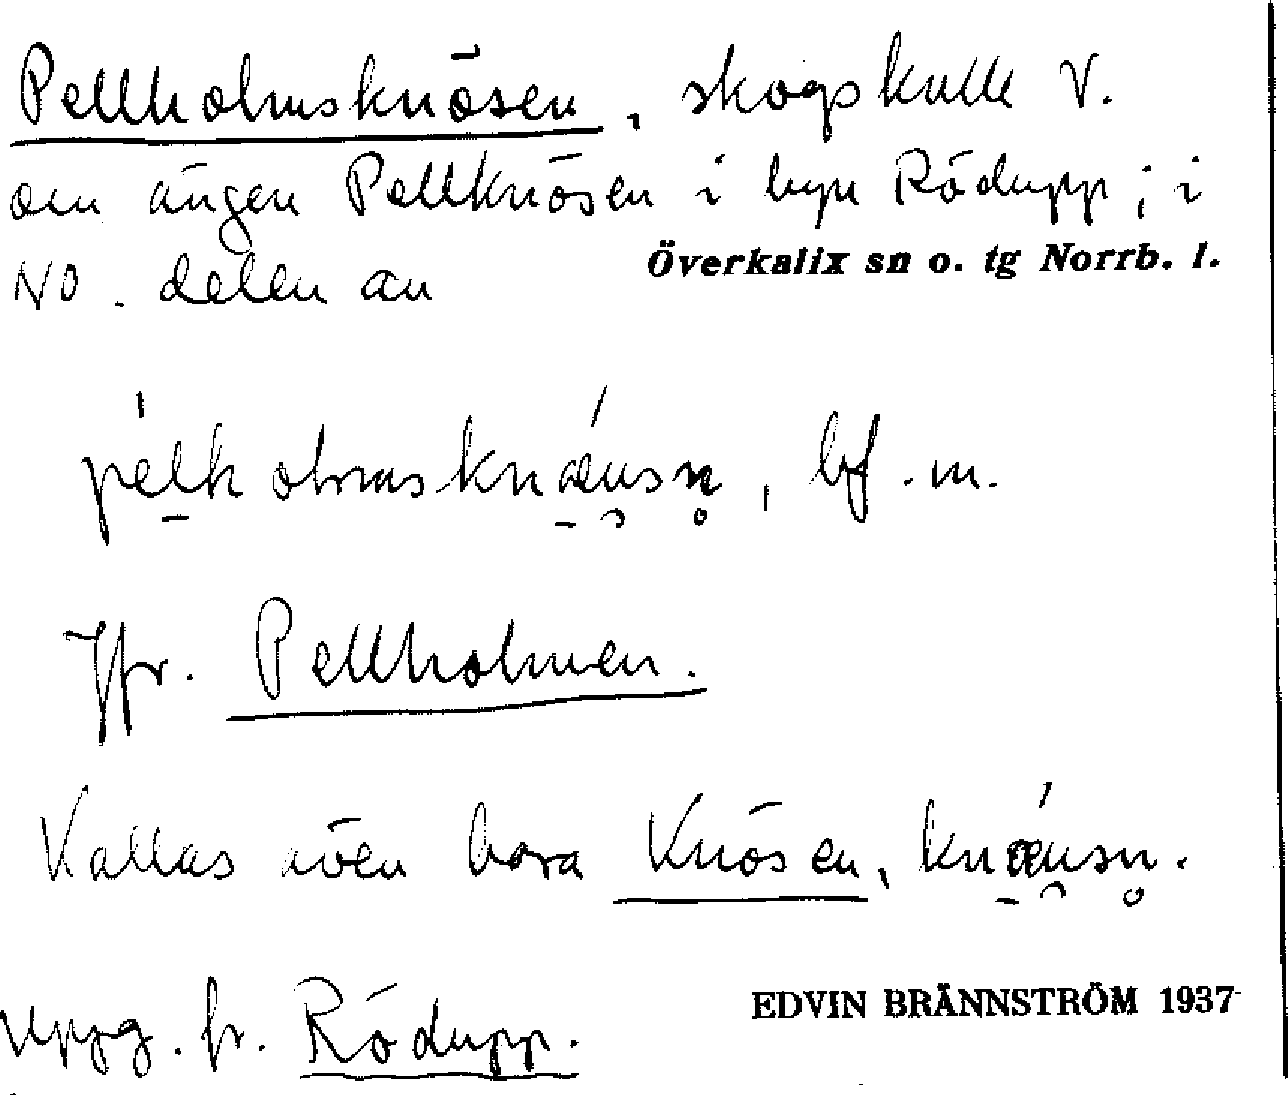 Pellholmsknösen, skogskulle V.
om ängen Pellknösen i byn Rödupp; i
NO. delen av
Överkalix sn o. tg Norrb. l.
pelholmsknæusn, bf. m.
Jfr. Pellholmen.
Kallas även bara Knösen, knæusn.
Uppg. fr. Rödupp.
EDVIN BRÄNNSTRÖM 1937